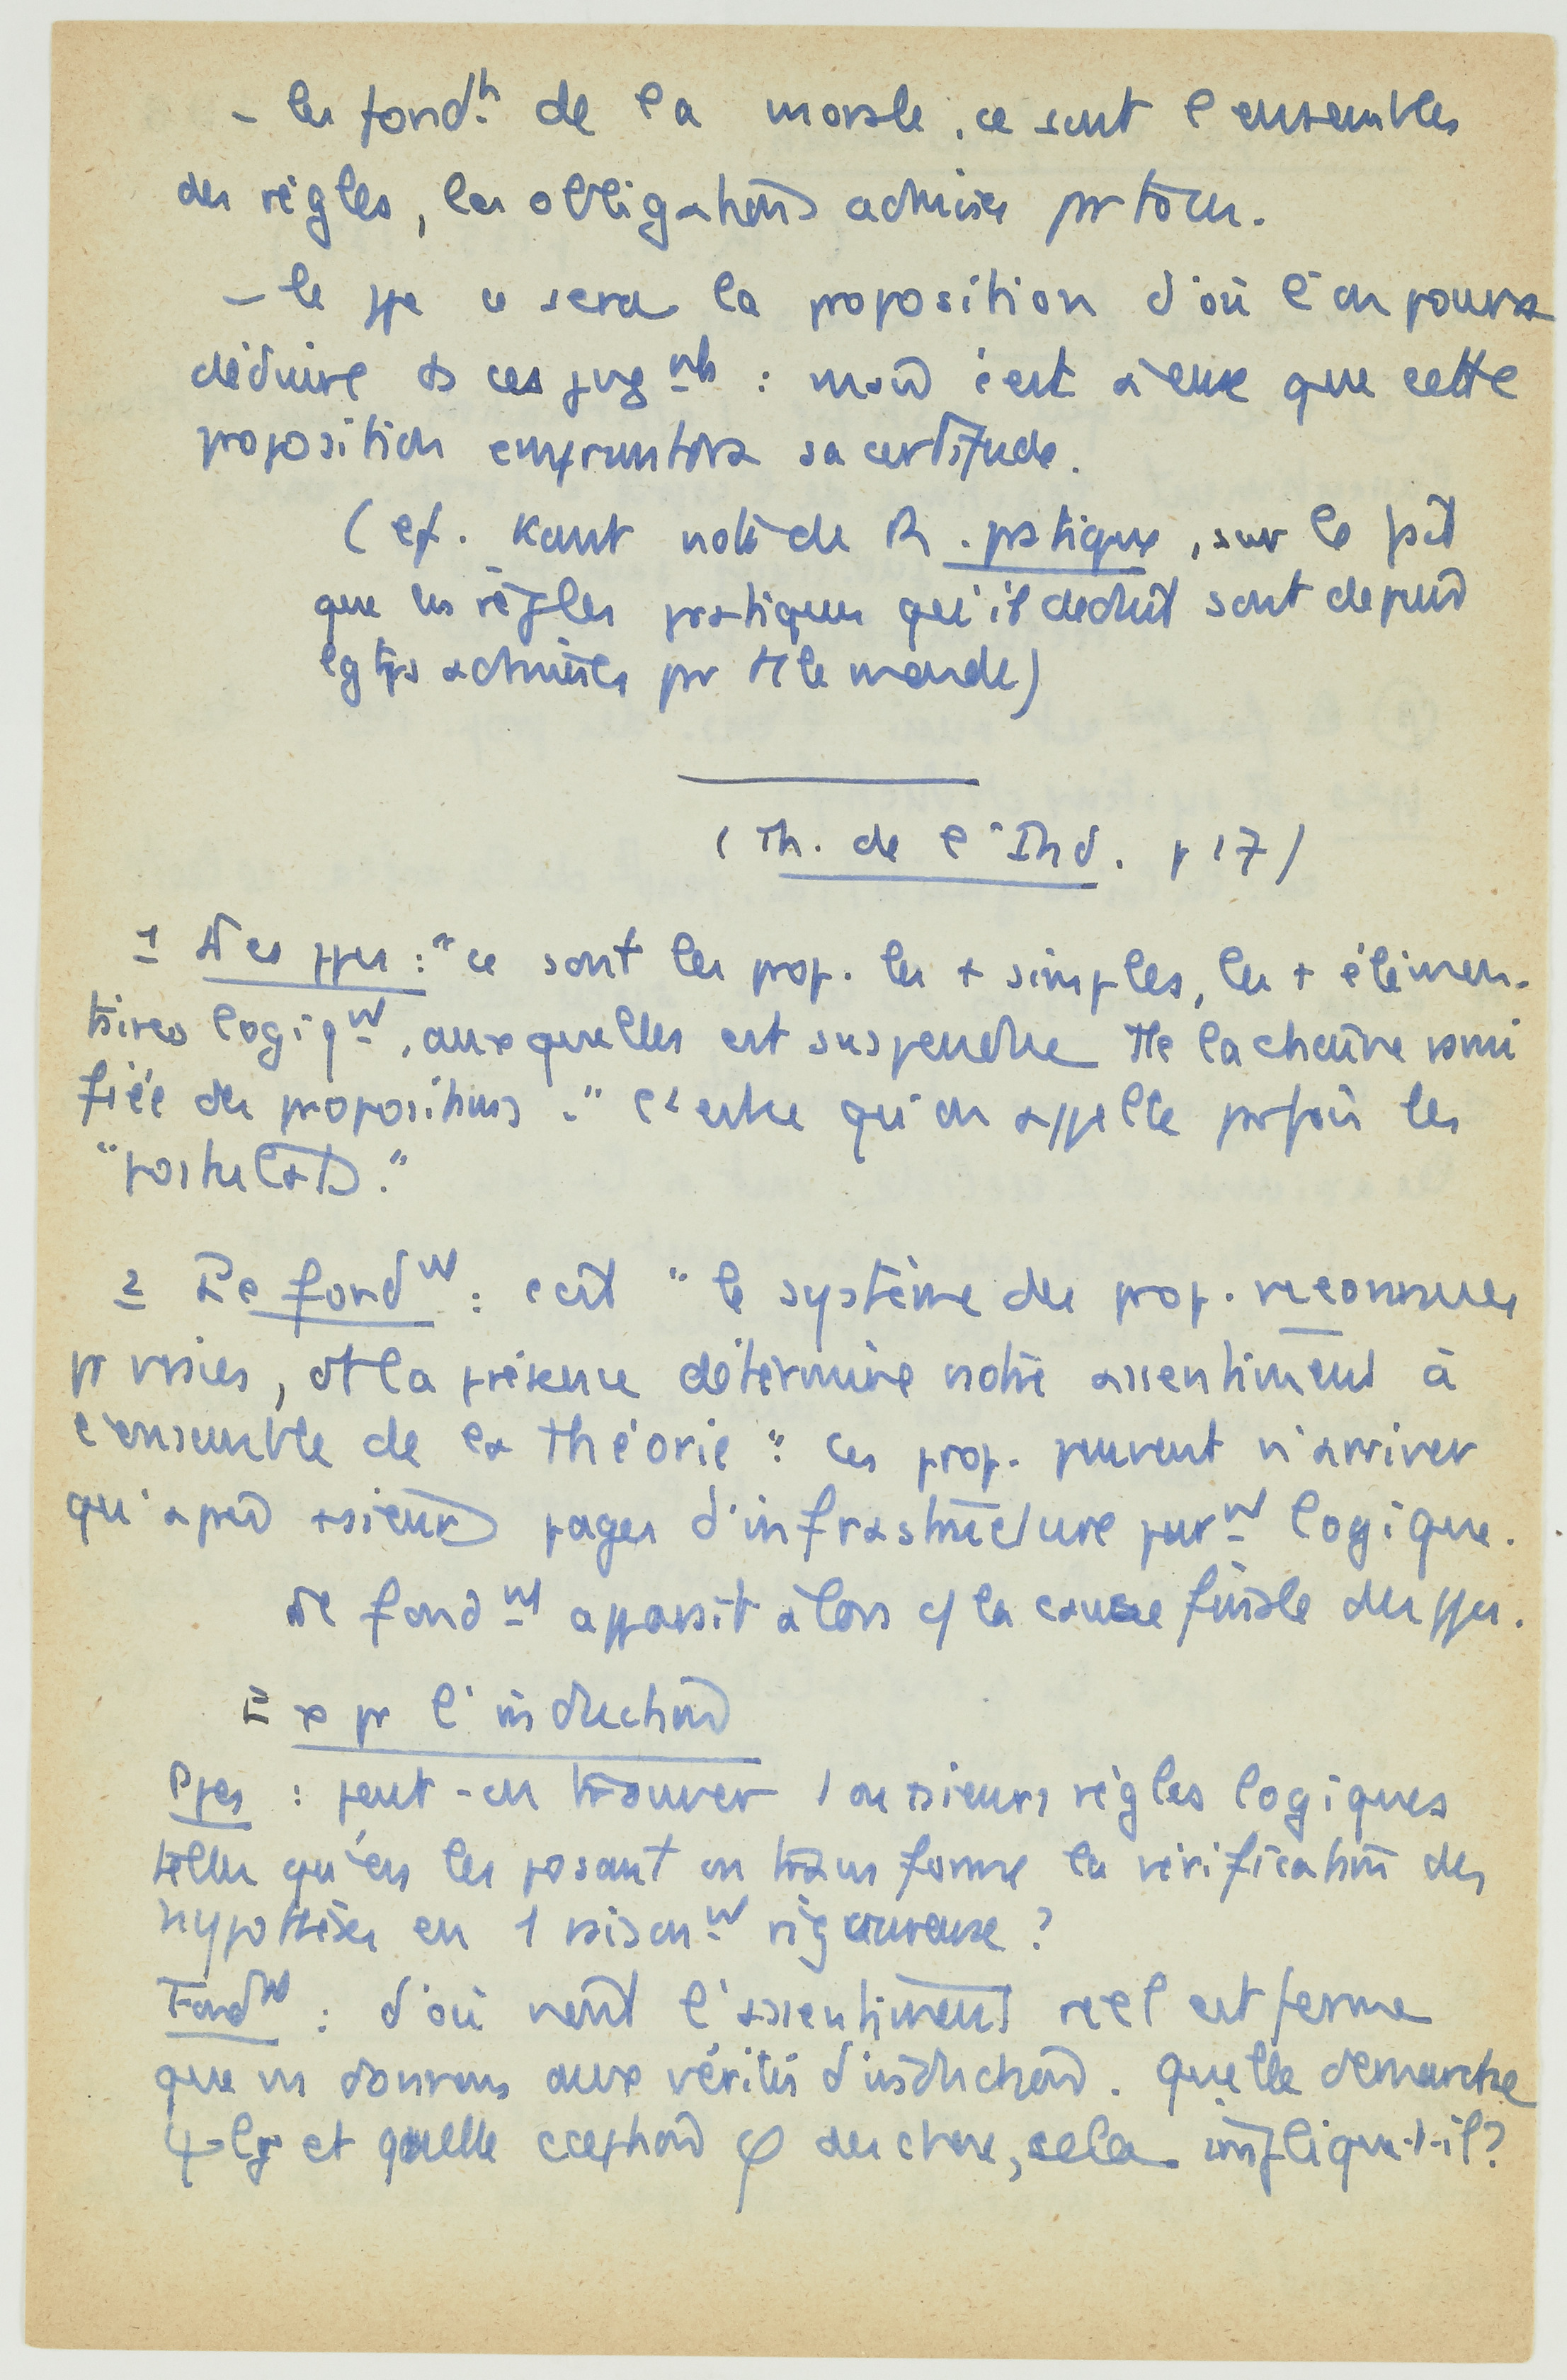 - les fondts de la morale, ce sont l'ensembles
des règles, les obligations admises par tous.
- le ppe ce sera la proposition d'où l'on pourra
déduire ts ces jugmts : mais c'est à eux que cette
proposition empruntera sa certitude.
(cf. Kant note de R. pratique, sur le fait
que les règles pratiques qu'il déduit sont depuis
lgtps admises par tt le monde)
(Th. de l'Ind. p 17)
1 Les ppes : "ce sont les prop. les + simples, les + élémen-
taires logiqmt, auxquelles est suspendue tte la chaîne rami
fiée des propositions." C'est ce qu'on appelle parfois les
"postulats."
2 Le fondmt : c'est "le système des prop. reconnues
pr vraies, dt la présence détermine notre assentiment à
l'ensemble de la théorie" : ces prop. peuvent n'arriver
qu'après +sieurs pages d'infrastructure purmt logique.
Le fondmt apparaît alors c/ la cause finale des ppes.
Ex pr l'induction
Ppes : peut-on trouver 1 ou +sieurs règles logiques
telles qu'en les posant on transforme la vérification des
hypothèses en 1 raisonmt rigoureuse ?
Fondmt : d'où vient l'assentiment réel et ferme
que ns donnons aux vérités d'induction. Quelle démarche
ψ-lgr et quelle cception φ des chose, cela implique-t-il ?